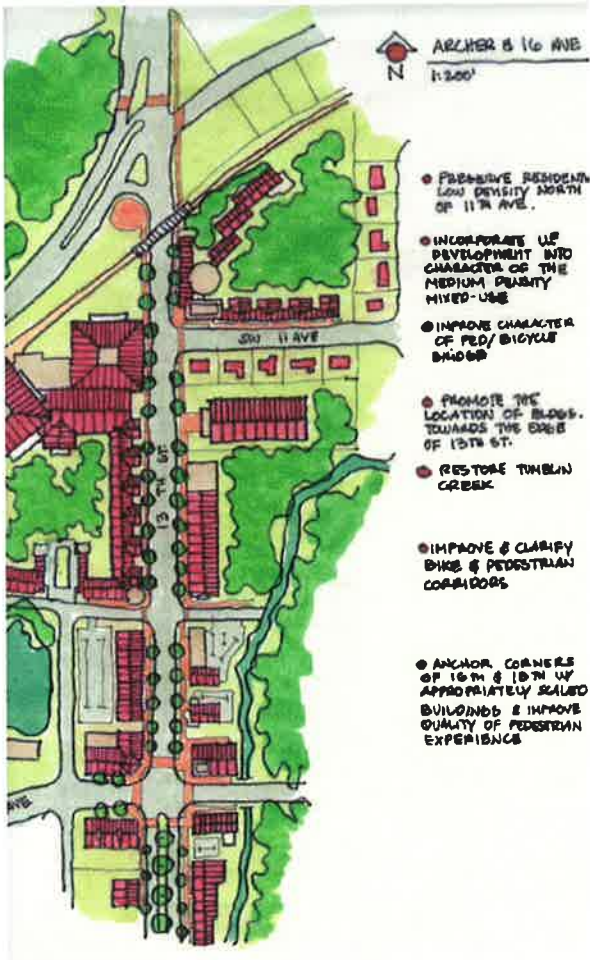 ARCHER & 16 AVE
N
1:200'
PRESERVE RESIDENTI
LOW DENSITY NORTH
OF 11TH AVE.
INCORPORATE UF
DEVELOPMENT INTO
CHARACTER OF THE
MEDIUM DENSITY
MIXED-USE
IMPROVE CHARACTER
OF PED/BICYCLE
BRIDGE
PROMOTE THE
LOCATION OF BLDGS.
TOWARDS THE EDGE
OF 13TH ST.
RESTORE TUMBLIN
CREEK
IMPROVE & CLARIFY
BIKE & PEDESTRIAN
CORRIDORS
ANCHOR CORNERS
OF 16TH & 13TH W/
APPROPRIATELY SCALED
BUILDINGS & IMPROVE
QUALITY OF PEDESTRIAN
EXPERIENCE
SW 11 AVE
13 TH ST
AVE